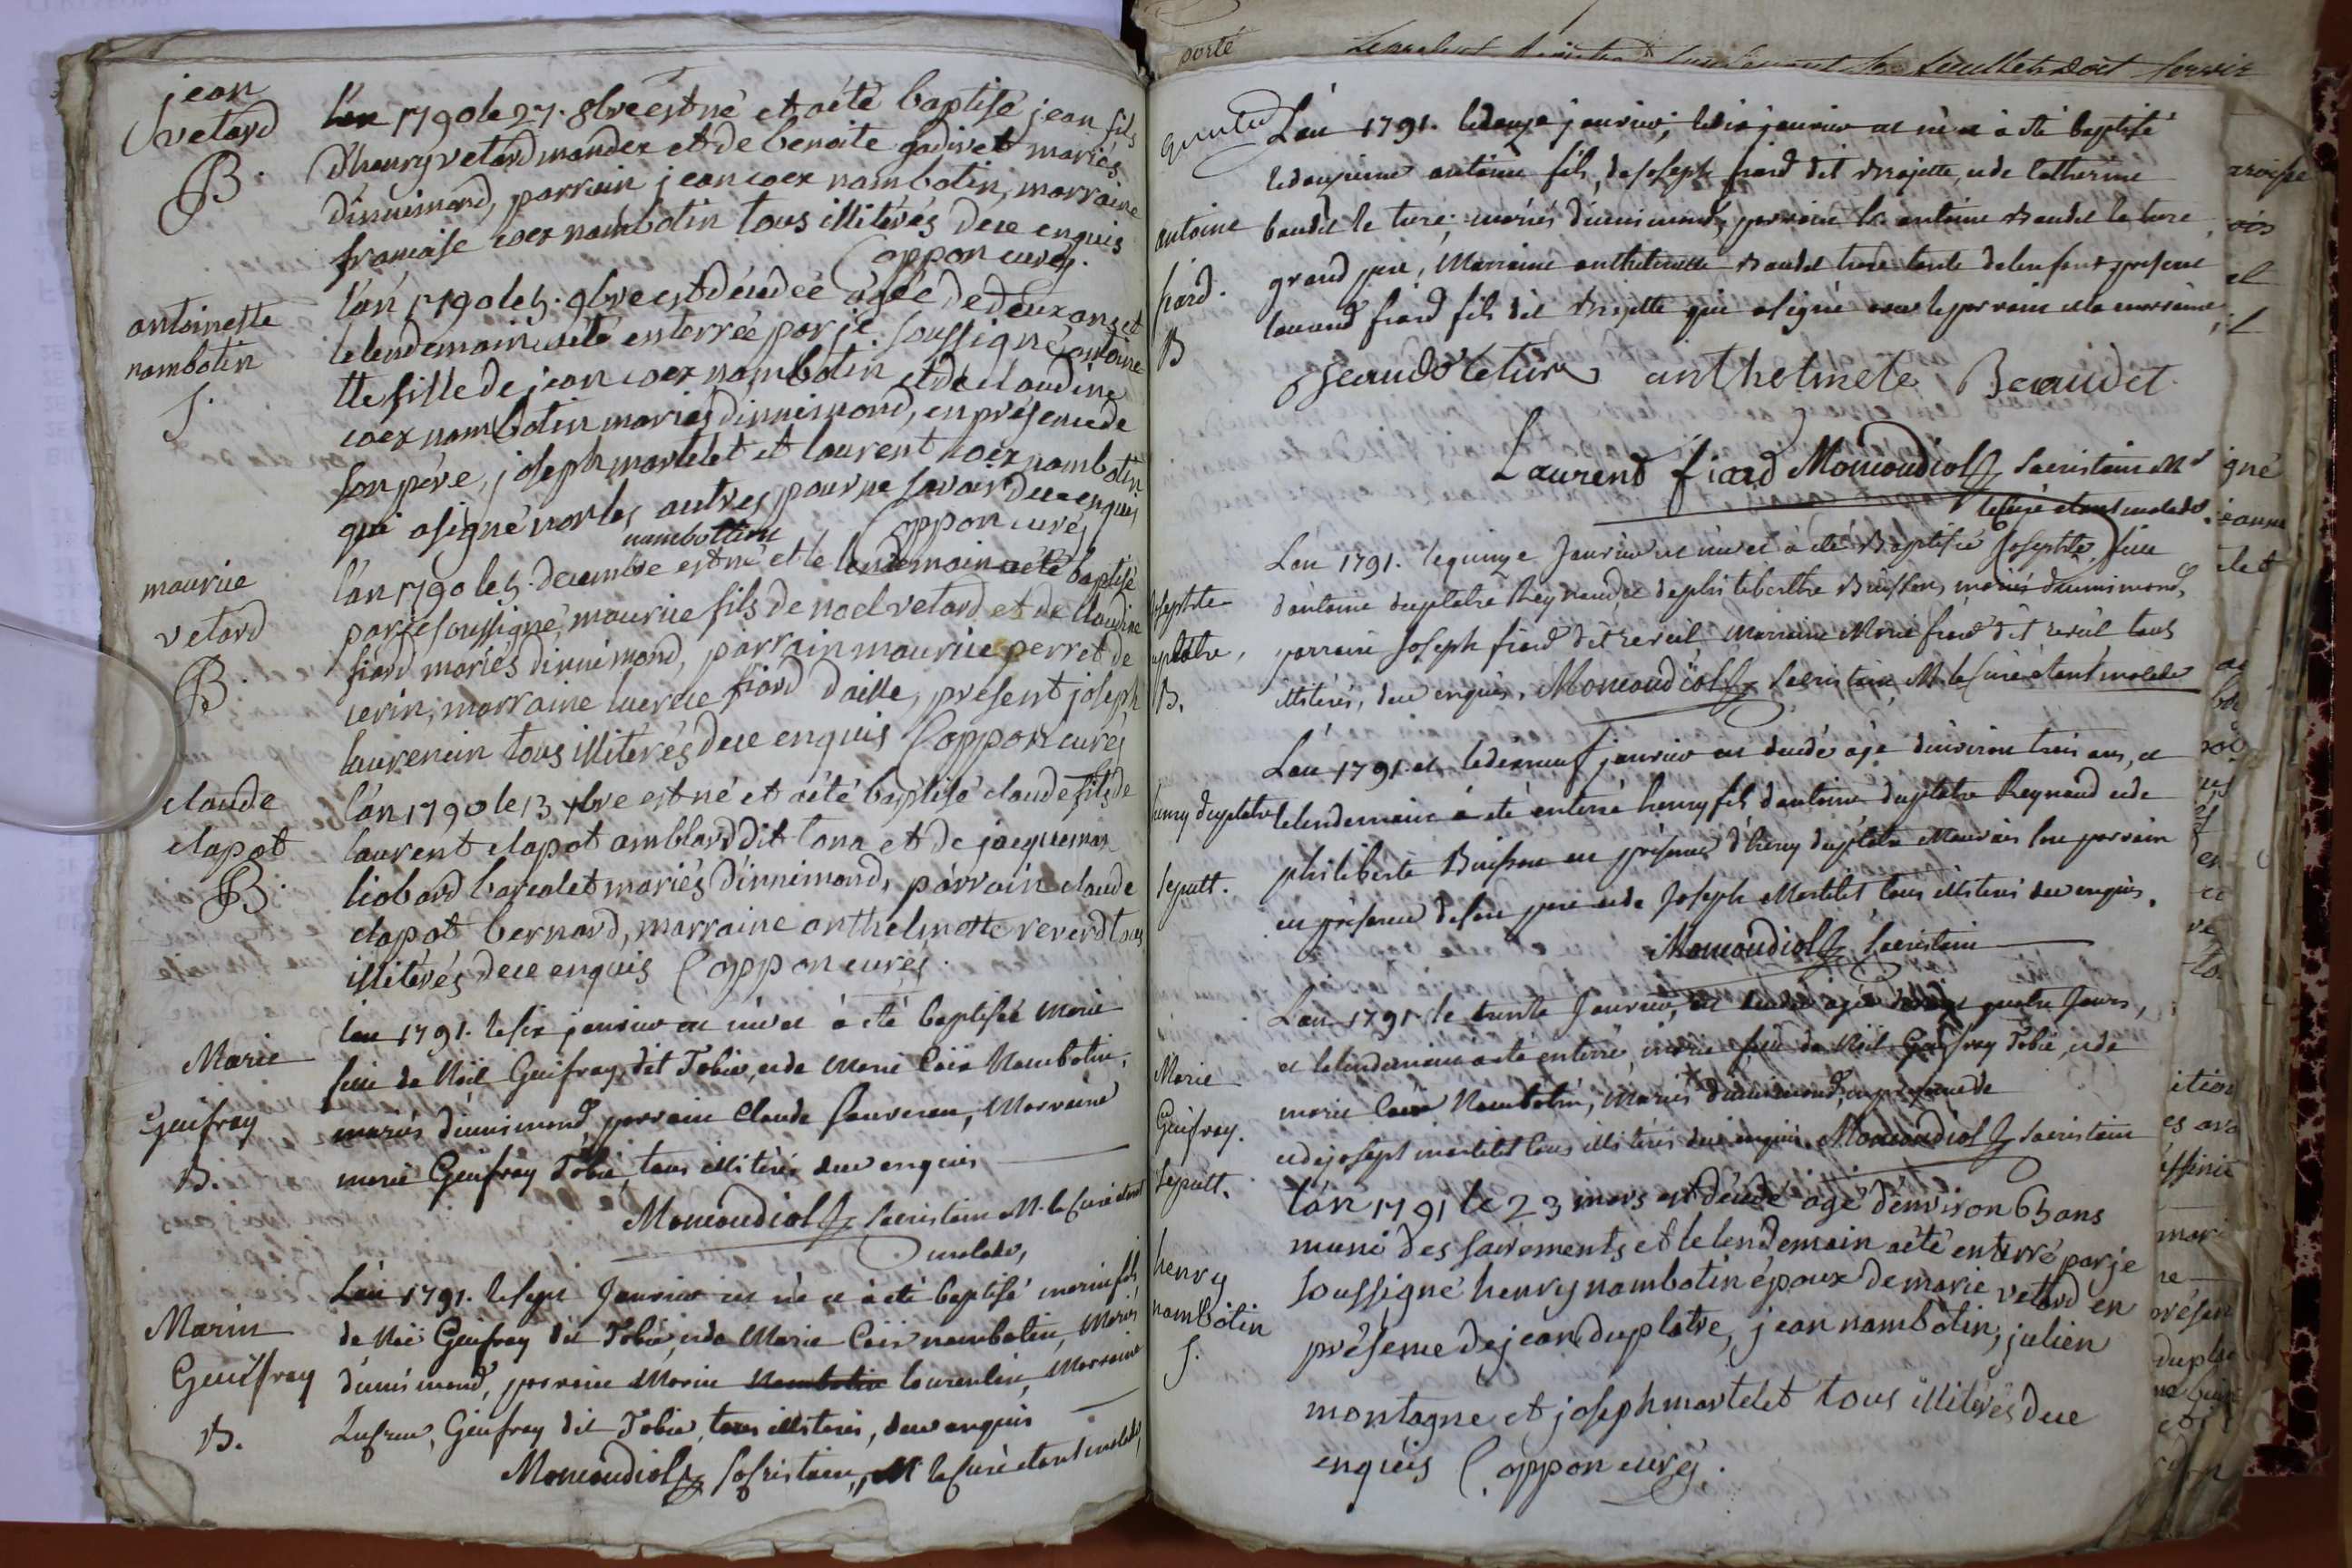 jean
vetard
B.
L'an 1790 le 27. 8bre est né et a été baptisé jean fils
d'henry vetard mander et de benoite gadivet mariés
d'innimond, parrain jean coex nambotin, marraine
francaise coex nambotin tous illitérés de ce enquis
Cappon curé.
antoinette
nambotin
S.
L'an 1790 le 5. 9bre est décedée agée de deux ans et
le lendemain a été enterrée par je soussigné antoine
tte fille de jean coex nambotin et de claudine
coex nambotin mariés d'innimond, en présence de
son père, joseph martelet et laurent coex nambotin
qui a signé non les autres pour ne savoir de ce enquis
nambottin Cappon curé
maurice
vetard
B.
L'an 1790 le 5. decembre est né et le lendemain a été baptisé
par je soussigné maurice fils de noel vetard et de claudine
fiard mariés d'innimond, parrain maurice perret de
cerin, marraine lucrece fiard d'aille, présent joseph
laurencin tous illitérés de ce enquis Cappon curé
claude
clapot
B.
L'an 1790 le 13 xbre est né et a été baptisé claude fils de
laurent clapot amblard dit tona et de jacquema
liobard barcalet mariés d'innimond, parrain claude
clapot bernard, marraine anthelmette reverd tous
illitérés de ce enquis Cappon curé.
Marie
Geuifray
B.
L'an 1791. le six janvier est née et a été baptisée Marie
fille de Noël Geuifray dit Tobie, et de Marie Coix Nambotin,
mariés d'innimond, parrain Claude Sauvereu, Marraine
marie Geuifray Tobie, tous illitérés de ce enquis
Moncoudiol Sacristain M. le Curé étant
malade,
Marin
Geuifray
B.
L'an 1791. le sept Janvier est né et a été baptisé marin fils
de Noë Geuifray dit Tobie, et de Marie Coix nambotin, Mariés
d'innimond, parrain Marin laurentin, Marraine
Geuifray dit Tobie, tous illitérés, de ce enquis
Moncoudiol Sacristain, M. le Curé étant malade
porté
feuillets doit servir
antoine
fiard.
B
L'an 1791. le douze janvier, le dix janvier est né et a été baptisé
le douzieme antoine fils de joseph fiard dit Brojette, et de Catherine
baudet le ture, mariés d'innimond, parrain Sr. antoine Baudet le ture
grand pere, Marraine anthelmette Baudet ture tante de l'enfant present
laurend fiard fils dit Brojette qui a signé avec le parrain et la marraine,
Beaudet leture anthelmete Beaudet
Laurend fiard Moncoudiol Sacristain Mr
le curé étant malade.
Josephte
duplatre,
B.
L'an 1791. le quinze Janvier est née et a été Baptisée Josephte, fille
d'antoine duplatre Reynaud, et de philiberthe Buisson, mariés d'innimond,
parrain Joseph fiard dit reveil, Marraine Marie fiard dit reveil tous
illitérés, de ce enquis. Moncoudiol Sacristain, M. le Curé étant malade
henry duplatre
sepult.
L'an 1791. et le dixneuf janvier est decédé agé d'environ trois ans, et
le lendemain a été enterré henry fils d'antoine duplatre Reynaud et de
philiberte Buisson en présence d'henry duplatre Mauvais son parrain
en présence de son pere et de Joseph Martelet tous illitérés de ce enquis.
Moncoudiol Sacristain
Marie
Geuifray.
sepult.
L'an 1791 le trente Janvier, est decédée agée de vingt quatre Jours,
et le lendemain a été enterrée, marie fille de Noël Geuifray Tobie, et de
marie Coix Nambotin, mariés d'innimond, en présence de
et de joseph martelet tous illitérés de ce enquis Moncoudiol Sacristain
henry
nambotin
S.
L'an 1791 le 23 mars est décédé agé d'environ 65 ans
muni des sacrements et le lendemain a été enterré par je
soussigné henry nambotin époux de marie vettard en
présence de jean duplatre, jean nambotin, julien
montagne et joseph martelet tous illitérés de ce
enquis Cappon curé.